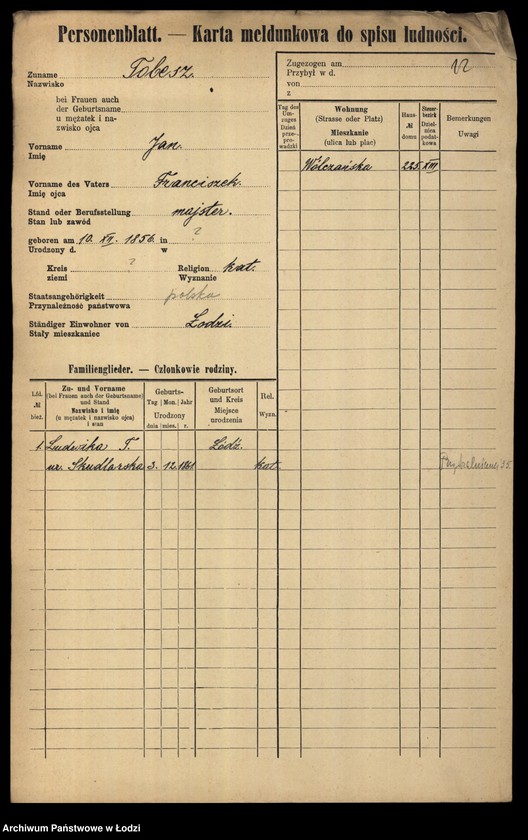 Personenblatt. — Karta meldunkowa do spisu ludności.
Zuname Tobesz.
Nazwisko
bei Frauen auch
der Geburtsname
u mężatek i na-
zwisko ojca
Vorname Jan.
Imię
Vorname des Vaters Franciszek.
Imię ojca
Stand oder Berufsstellung majster.
Stan lub zawód
geboren am 10. XII. 1856. in ?
Urodzony d. w
Kreis ? Religion kat.
ziemi Wyznanie
Staatsangehörigkeit polska
Przynależność państwowa
Ständiger Einwohner von Łodzi.
Stały mieszkaniec
Familienglieder. — Członkowie rodziny.
Lfd. № bież.
Zu- und Vorname
(bei Frauen auch der Geburtsname)
und Stand
Nazwisko i imię
(u mężatek i nazwisko ojca)
i stan
Geburts-
Tag Mon. Jahr
Urodzony
dnia mies. r.
Geburtsort
und Kreis
Miejsce
urodzenia
Rel.
Wyzn.
1. Ludwika T. Łódź.
ur. Skudlarska 3. 12. 1861 kat.
Zugezogen am 12
Przybył w d.
von
z
Tag des
Um-
zuges
Dzień
prze-
pro-
wadzki
Wohnung
(Strasse oder Platz)
Mieszkanie
(ulica lub plac)
Haus-
№
domu
Steuer-
bezirk
Dziel-
nica
podat-
kowa
Bemerkungen
Uwagi
Wólczańska 225. XIII
35.
Archiwum Państwowe w Łodzi